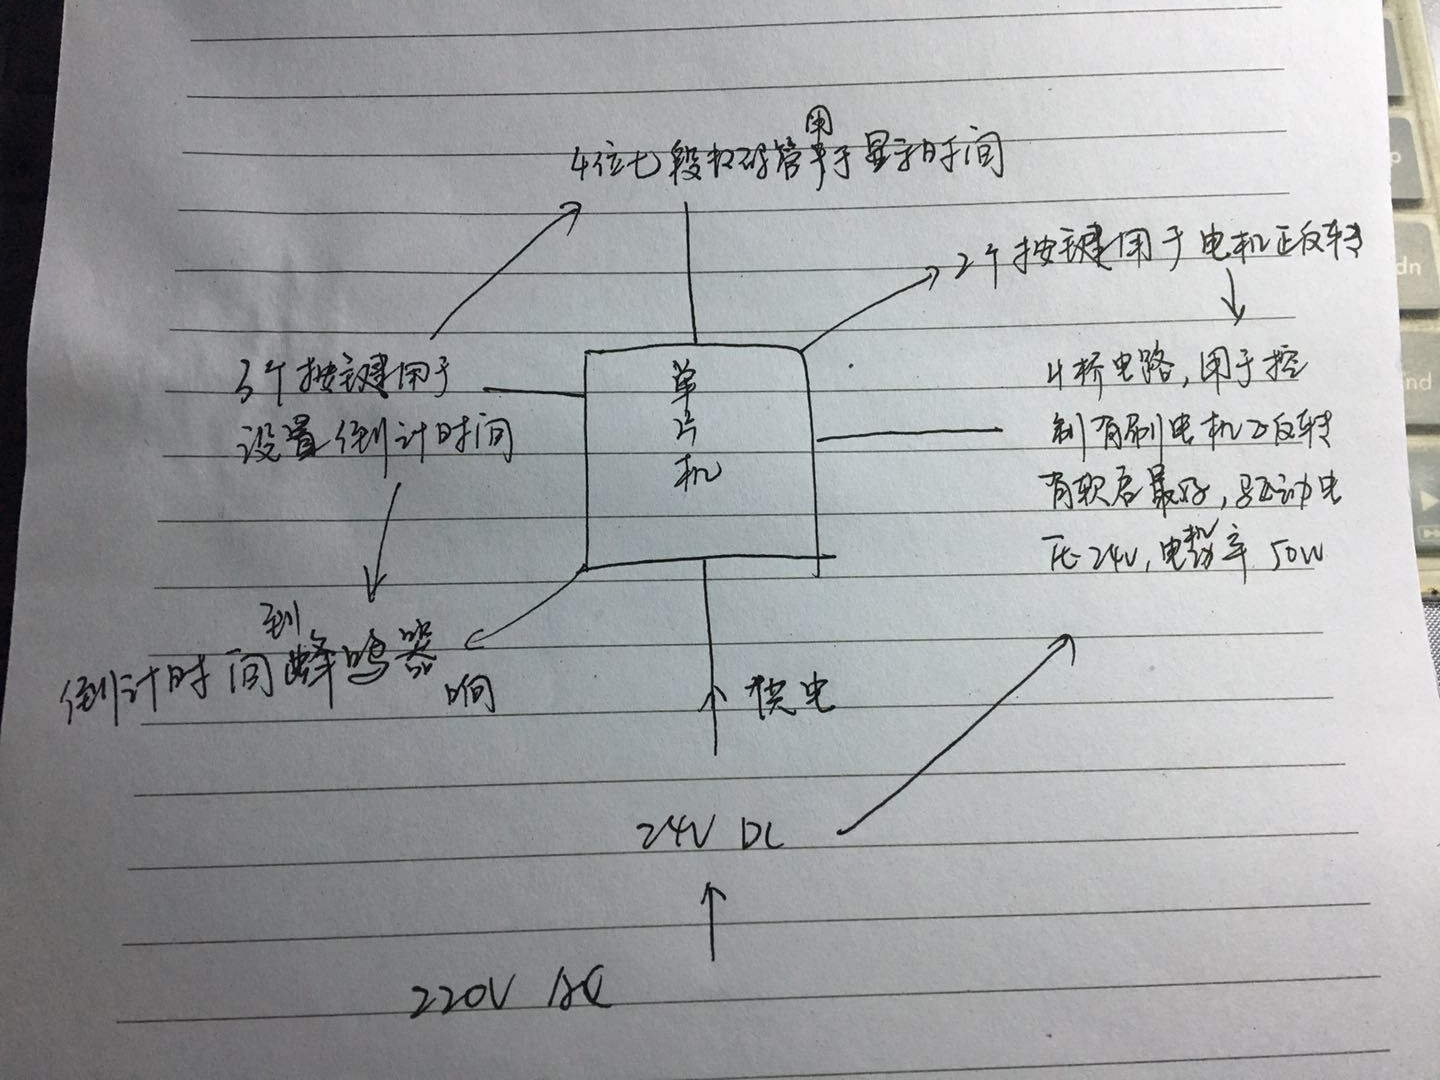 4位七段数码管用于显示时间
2个按键用于电机正反转
3个按键用于
设置倒计时间
单
片
机
H桥电路,用于控
制有刷电机正反转
有软启最好,驱动电
压24V,电机功率50W
倒计时间到蜂鸣器
响
供电
24V DC
220V AC